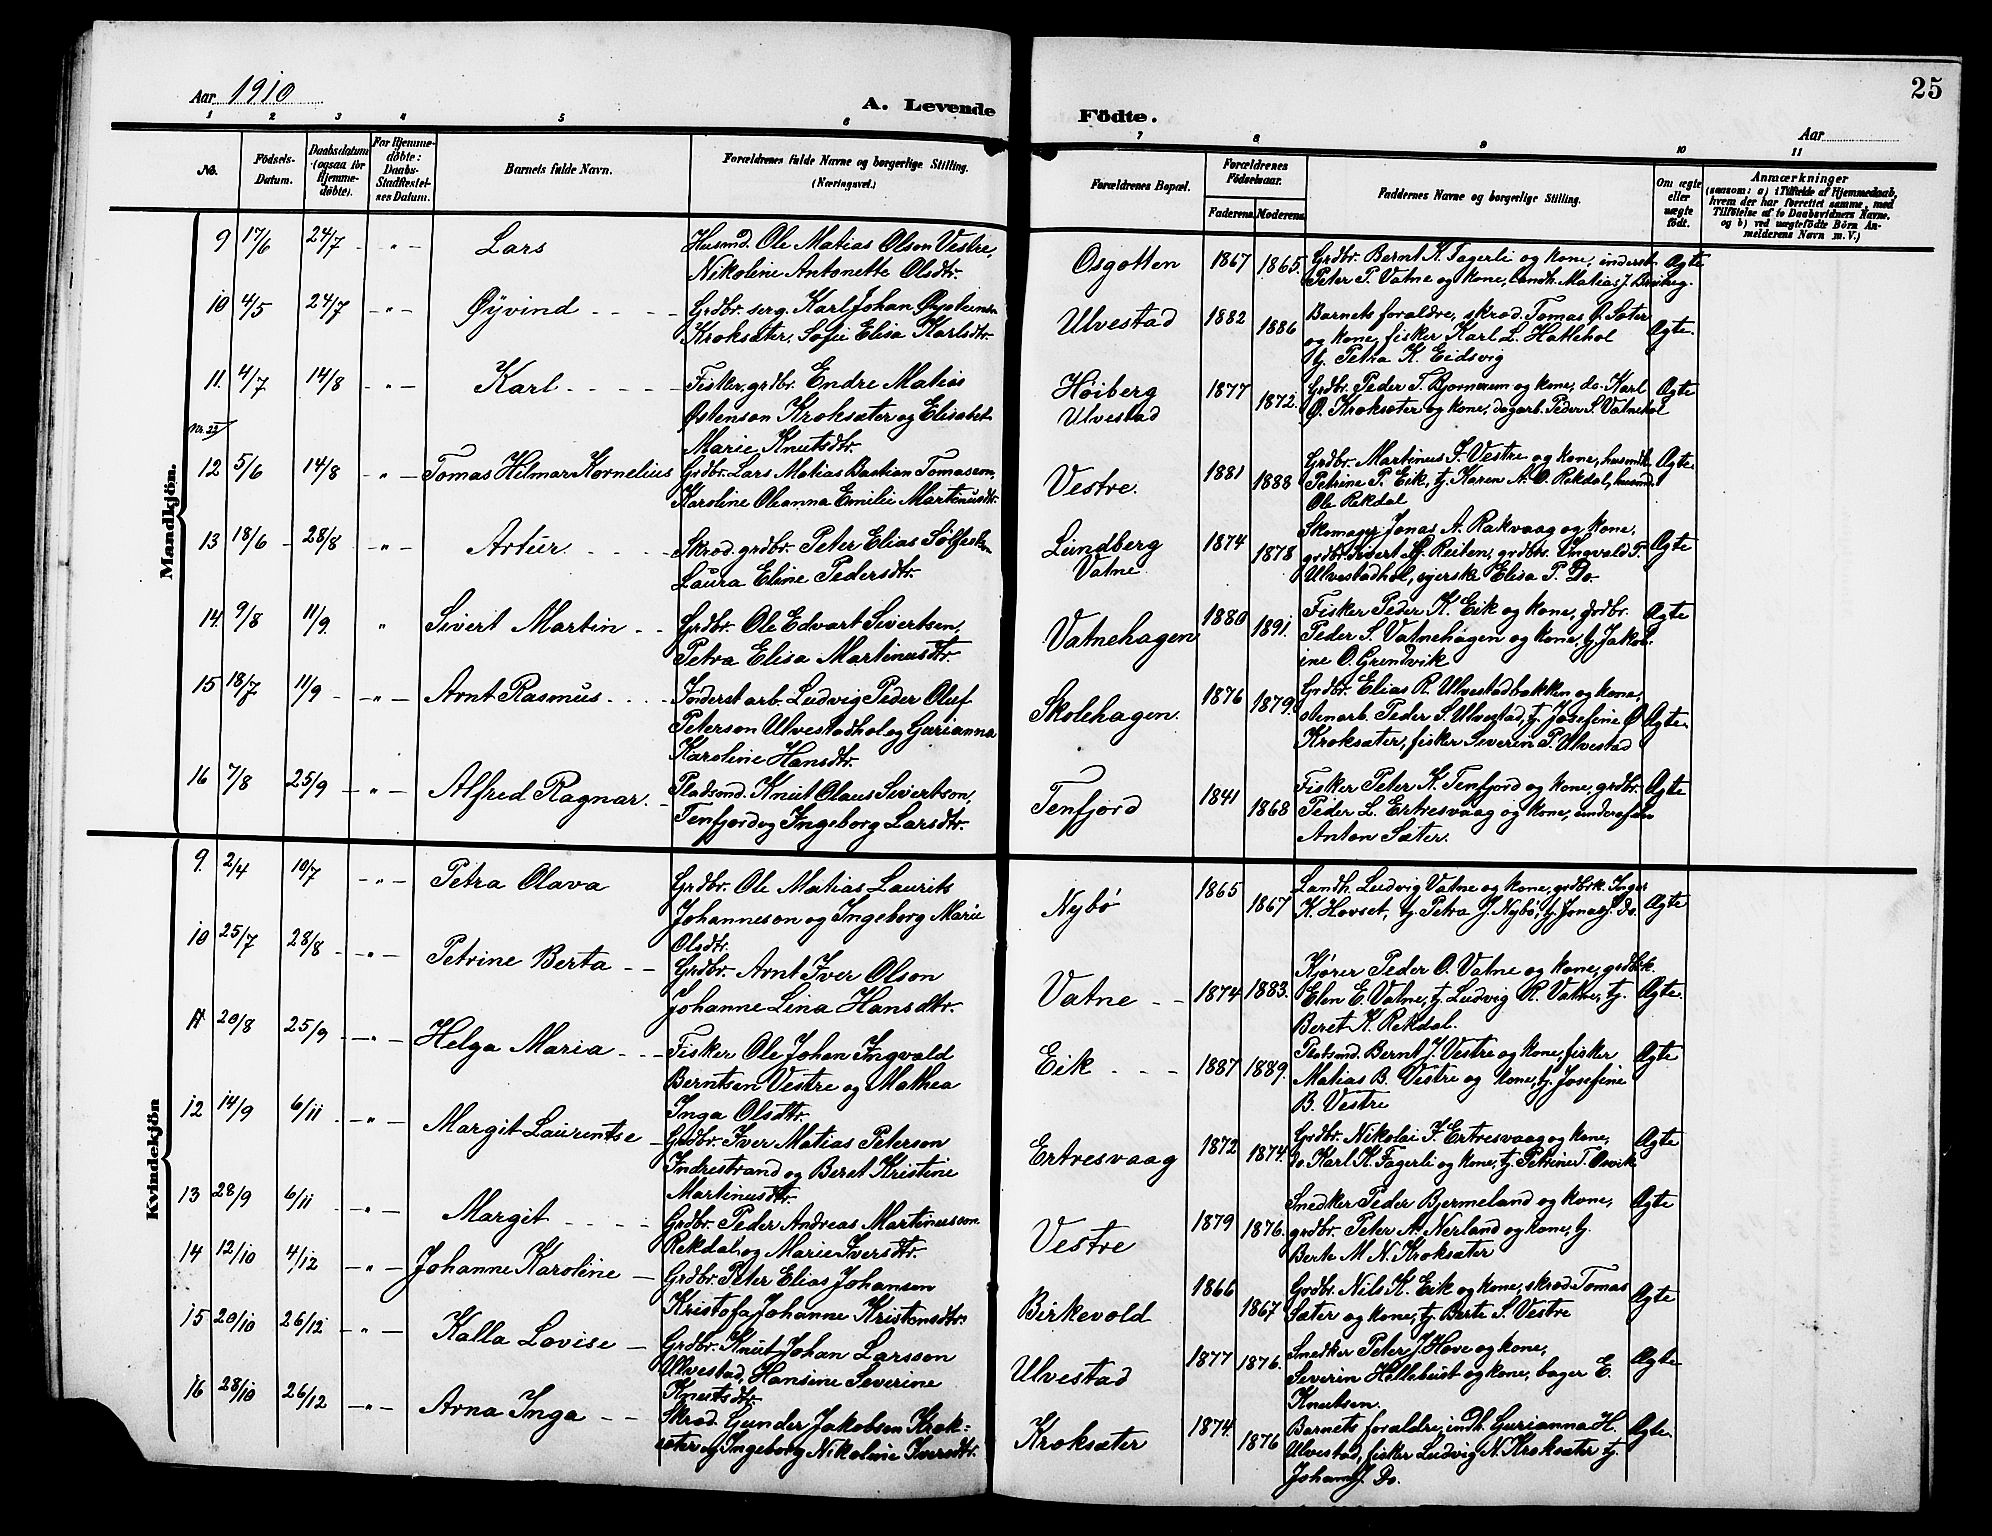 Aar 1910
A. Levende
Födte.
25
Aar
1 2 3 4 5 6 7 8 9 10 11
No.
Födsels-Datum.
Daabsdatum (ogsaa for Hjemme-døbte).
For Hjemme-døbte: Daabs-Stadfæstel-ses Datum.
Barnets fulde Navn.
Forældrenes fulde Navne og borgerlige Stilling.
(Næringsvei.)
Forældrenes Bopæl.
Forældrenes Födselsaar.
Faderens Moderens
Faddernes Navne og borgerlige Stilling.
Om ægte eller uægte født.
Anmærkninger
(saasom: a) i Tilfælde af Hjemmedaab,
hvem der har forrettet samme, med
Tilföielse af to Daabsvidners Navne.
og b) ved uægtefödte Börn An-
melderens Navn m. V.)
Mandkjön.
9 17/6 24/7 - " - Lars
Husmd. Ole Matias Olson Vestre,
Nikoline Antonette Olsdtr.
Osgotten 1867 1865.
Grdbr. Bernt K. Fagerli og kone, inderst
Peter T. Vatne og kone, Landh. Matias J.
Ægte
10 4/5 24/7 - " - Öyvind
Grdbr. serg. Karl Johan Öystensen
Kroksæter, Sofie Elisa Karlsdtr.
Ulvestad 1882 1886
Barnets forældre, skræd. Tomas O. Sæter
og kone, fisker Karl L. Hattehol
tj. Petra K. Eidsvig
Ægte.
11. 4/7 14/8 - " - Karl
Fisker, grdbr. Endre Matias
Östenson Kroksæter og Elisabet
Marie Knutsdtr.
Höiberg
Ulvestad
1877 1872.
Grdbr. Peder T. Bjørnerem og kone, do. Karl
Ø. Kroksæter og kone, dagarb. Peder S. Vatnehol
Ægte
Nr. 22
12 5/6 14/8 - " - Tomas Hilmar Kornelius
Grdbr. Lars Matias Bastian Tomasson,
Karoline Oleanna Emilie Martinusdtr.
Vestre. 1881 1888
Grdbr. Martinus I. Vestre og kone, husmdk.
Petrine P. Eik, tj. Karen A. O. Rekdal, husmd.
Ole Rekdal
Ægte.
13 18/6 - 28/8 - " - Artur
Skræd. grdbr. Peter Elias
Laura Eline Pedersdtr.
Lundberg
Vatne
1874 1878
Skomager Jonas A. Rakvaag og kone,
grdbr. Sivert G. Reiten, grdbr. Ingvald T.
Ulvestadhol, syerske Elisa P. Do.
Ægte
14. 9/8 11/9. " Sivert Martin
Grdbr. Ole Edvart Sivertsen,
Petra Elisa Martinusdtr.
Vatnehagen 1880 1891.
Fisker Peder K. Eik og kone, grdbr.
Peder S. Vatnehagen og kone, tj. Jakob-
ine O. Grendvik
Ægte
15 18/7 11/9 - " - Arnt Rasmus
Inderst arb. Ludvig Peder Oluf
Peterson Ulvestadhol og Gurianna
Karoline Hansdtr.
Skolehagen. 1876 1879.
Grdbr. Elias R. Ulvestadbakken og kone,
stenarb. Peder S. Ulvestad, tj. Josefine Ø
Kroksæter, fisker Severin P. Ulvestad
Ægte.
16 7/8 25/9 - " - Alfred Ragnar.
Pladsmd. Knut Olaus Sivertson,
Tenfjord og Ingeborg Larsdtr.
Tenfjord 1841 1868
Fisker Peter K. Tenfjord og kone, grdbr.
Peder L. Ertresvaag og kone, underofser
Anton Sæter.
Ægte
Kvindekjön
9. 2/4 10/7 - " - Petra Olava
Grdbr. Ole Matias Laurits
Johanneson og Ingeborg Marie
Olsdtr.
Nybö 1865 1867
Landh. Ludvig Vatne og kone, grdbrk. Inger
K. Hovset, tj. Petra J. Nybö, tj. Jonas J. do.
Ægte
10 25/7 28/8 - " - Petrine Berta
Grdbr. Arnt Iver Olson
Johanne Lina Hansdtr.
Vatne 1874 1883.
Kjörer Peder O. Vatne og kone, grdbrk.
Elen E. Vatne, tj. Ludvig R. Vatne, tj.
Beret K. Rekdal.
Ægte.
11 20/8 25/9 - " - Helga Maria
Fisker Ole Johan Ingvald
Berntsen Vestre og Mathea
Inga Olsdtr.
Eik 1887 1889.
Pladsmd. Bernt J. Vestre og kone, fisker
Matias B. Vestre og kone, tj. Josefine
B. Vestre
Ægte
12 14/9 6/11 - " - Margit Laurentse
Grdbr. Iver Matias Peterson
Indrestrand og Beret Kristine
Martinusdtr.
Ertresvaag 1872 1874.
Grdbr. Nikolai I. Ertresvaag og kone,
do. Karl K. Fagerli og kone, tj. Petrine T. Osvik
Ægte
13 28/9 6/11 - " - Margit
Grdbr. Peder Andreas Martinusson
Rekdal og Marie Iversdtr.
Vestre 1879 1876.
Snedker Peder Bjermeland og kone,
grdbr. Peter A. Nerland og kone, tj.
Berte M. N. Kroksæter
Ægte
14 12/10 4/12 - " - Johanne Karoline
Grdbr. Peter Elias Johansen
Kristofa Johanne Kristensdtr.
Birkevold 1866 1867
Grdbr. Nils K. Eik og kone, skræd. Tomas
Sæter og kone, tj. Berte S. Vestre
Ægte
15 20/10 26/12 - " - Kalla Lovise
Grdbr. Knut Johan Larsson
Ulvestad, Hansine Severine
Knutsdtr.
Ulvestad 1877 1876.
Snedker Peter J. Hove og kone,
Severin Hellebust og kone, bager E.
Knutsen.
Ægte
16 28/10 26/12 - " - Arna Inga
Skræd. Gunder Jakobsen Krok-
sæter og Ingeborg Nikoline Iversdtr.
Kroksæter 1874. 1876
Barnets forældre, indh. Gurianna H.
Ulvestad, fisker Ludvig N. Kroksæter tj.
Johan J. Do.
Ægte.